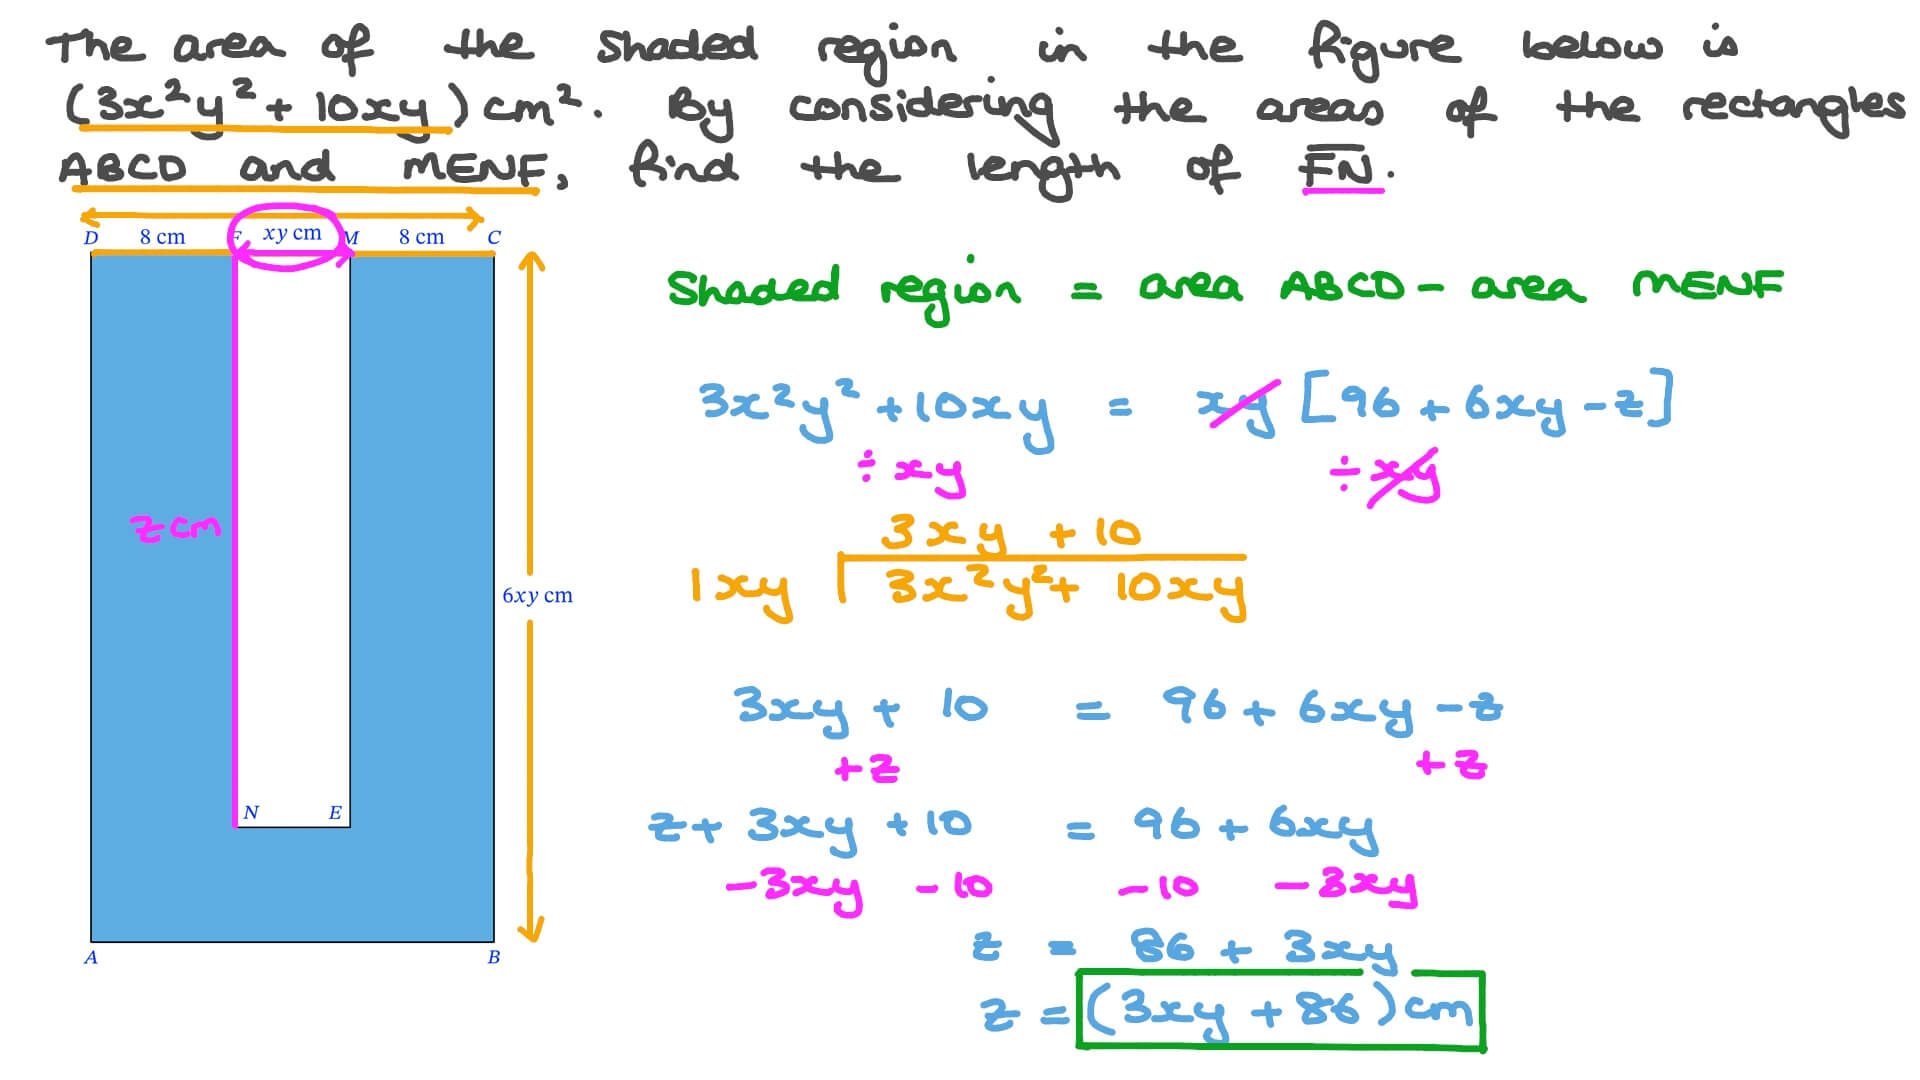 The area of the shaded region in the figure below is
(3x²y² + 10xy) cm². By considering the areas of the rectangles
ABCD and MENF, find the length of F̅N̅.
D 8 cm F xy cm M 8 cm C
Shaded region = area ABCD - area MENF
3x²y² + 10xy = xy [96 + 6xy - z]
÷ xy ÷ xy
z cm
3xy + 10
1xy 3x²y² + 10xy
6xy cm
3xy + 10 = 96 + 6xy - z
+z +z
N E
z + 3xy + 10 = 96 + 6xy
-3xy -10 -10 -3xy
z = 86 + 3xy
A B
z = (3xy + 86) cm